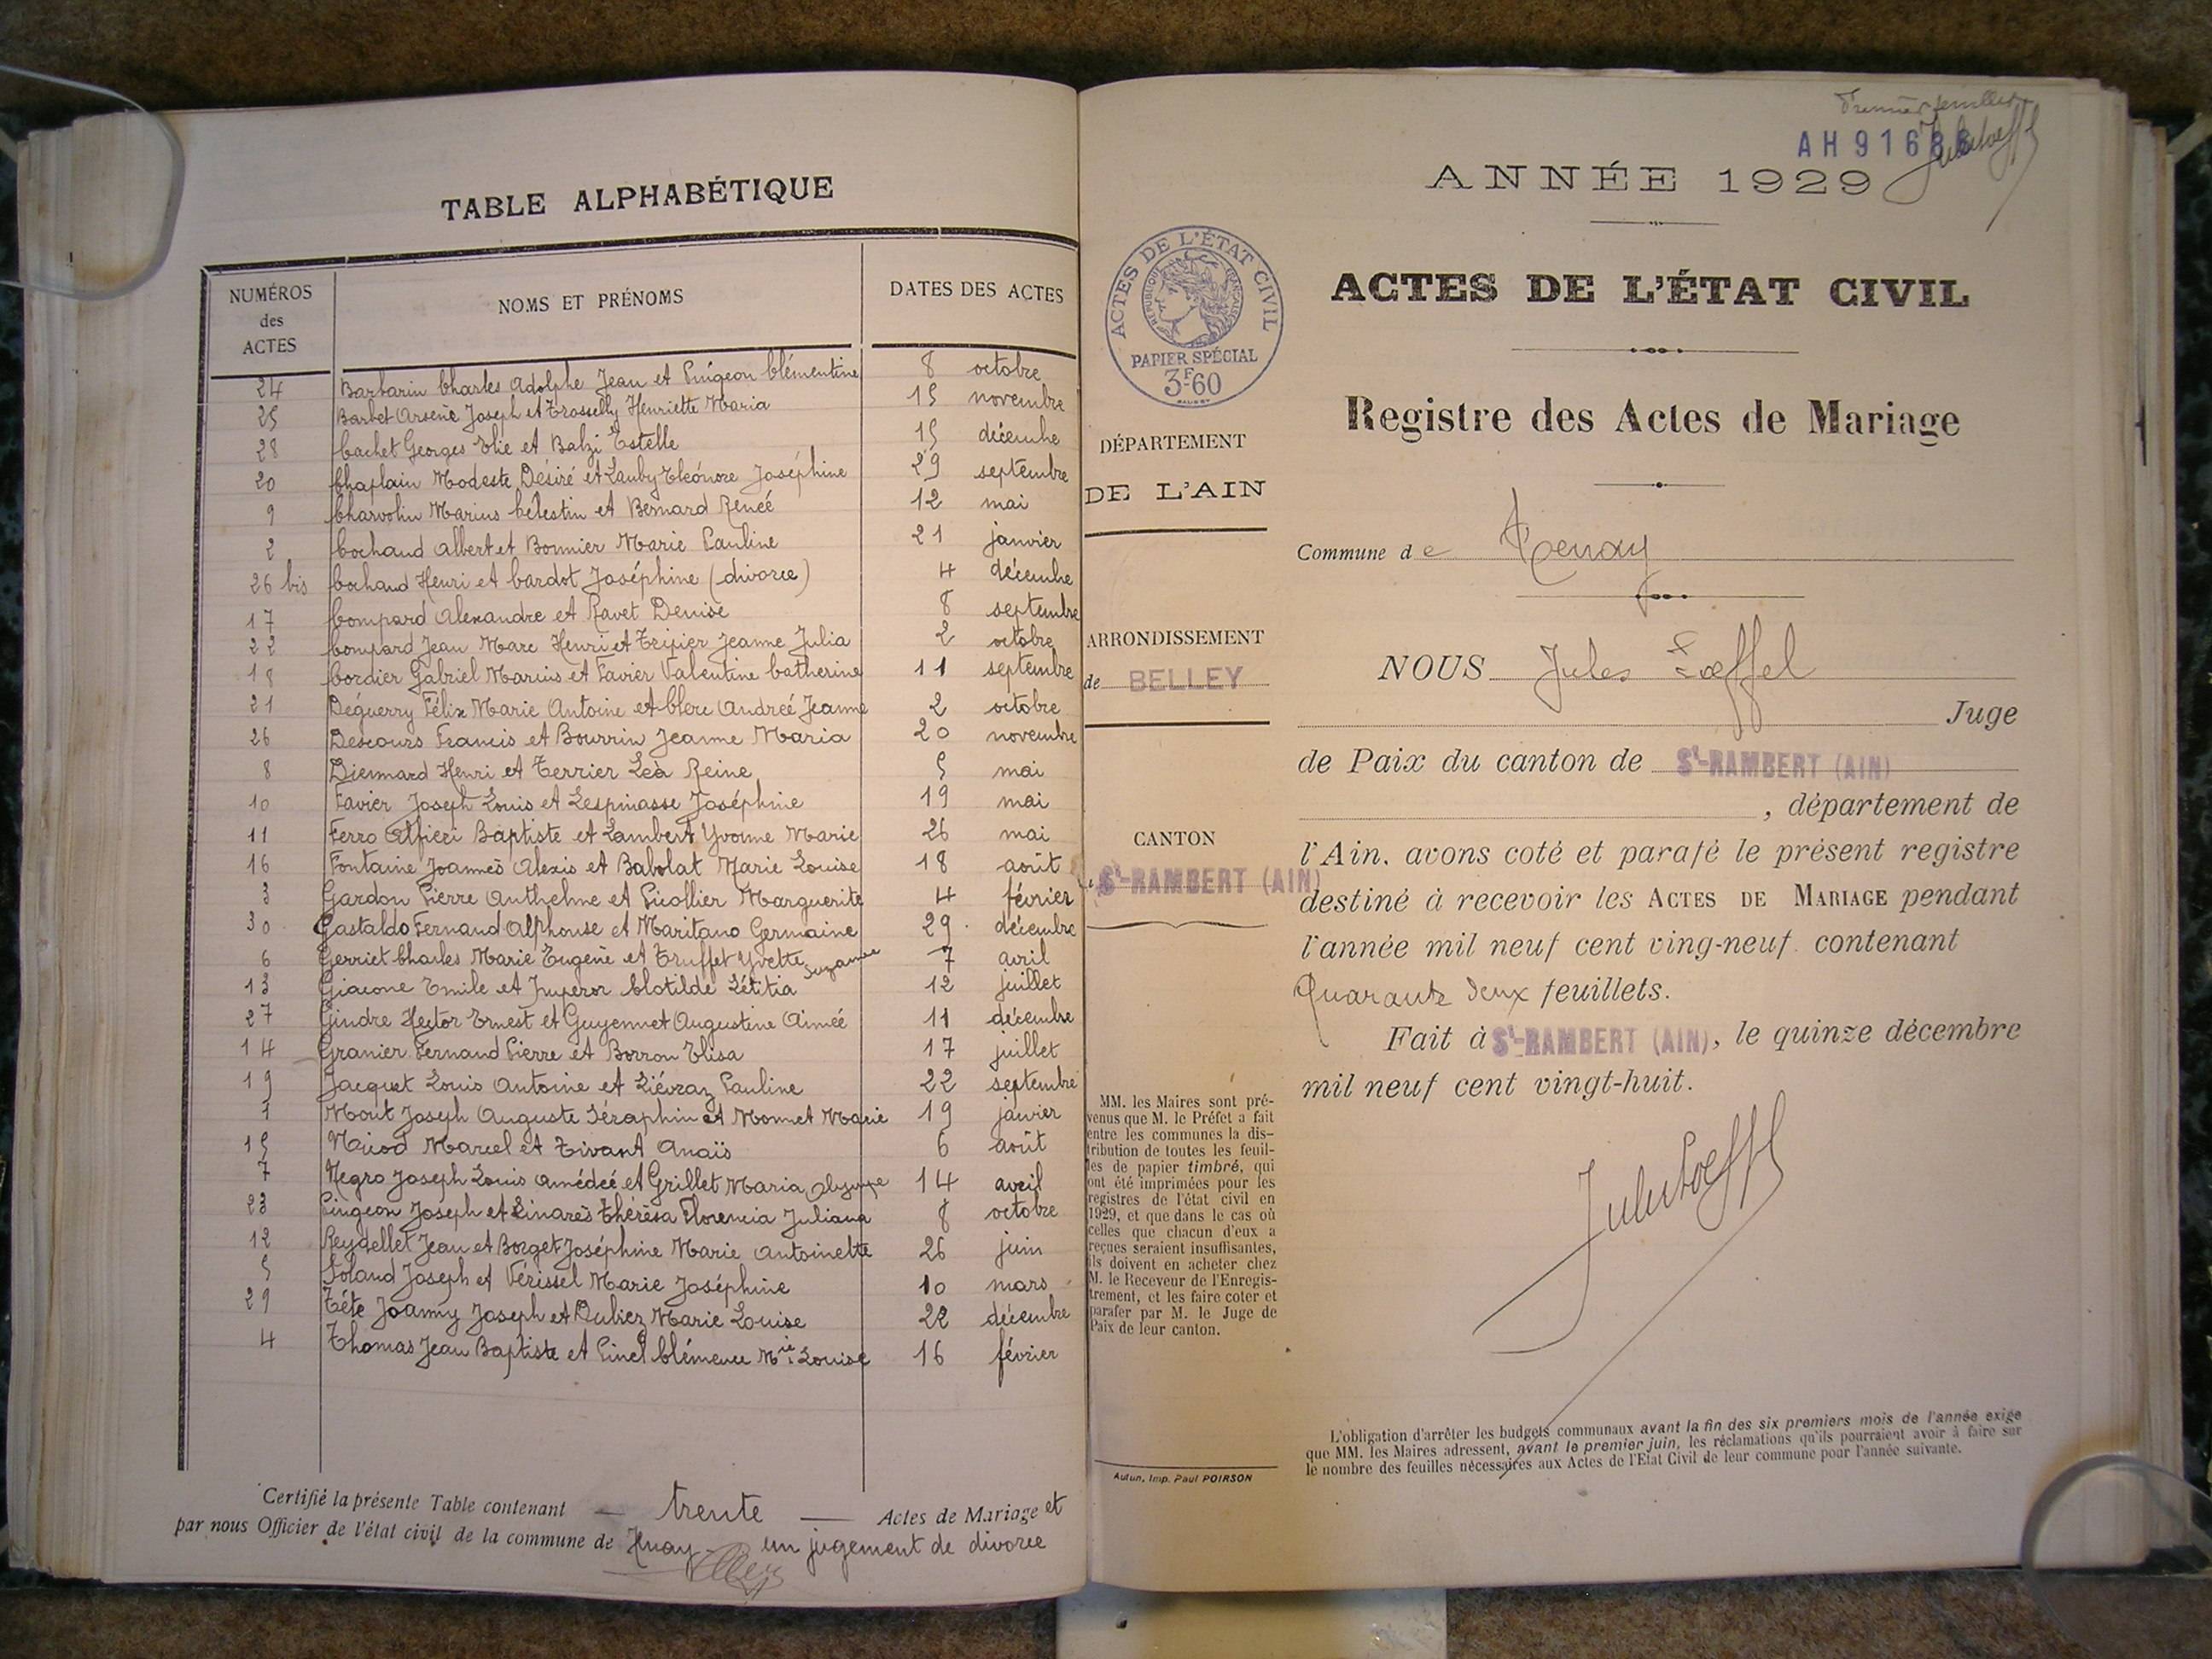 TABLE ALPHABÉTIQUE
NUMÉROS des ACTES
NOMS ET PRÉNOMS
DATES DES ACTES
24 Barbarin Charles Adolphe Jean et Pingeon Clémentine 8 octobre
25 Barbet Arsène Joseph et Trosselly Henriette Maria 15 novembre
28 Cachet Georges Elie et Balzi Estelle 15 décembre
20 Chaplain Modeste Désiré et Lauby Eléonore Joséphine 29 septembre
9 Charvolin Marius Célestin et Bernard Renée 12 mai
2 Cochaud Albert et Bonnier Marie Pauline 21 janvier
26 bis Cochaud Henri et Cardot Joséphine (divorce) 4 décembre
17 Compard Alexandre et Ravet Denise 8 septembre
22 Compard Jean Marc Henri et Tripier Jeanne Julia 2 octobre
18 Cordier Gabriel Marius et Favier Valentine Catherine 11 septembre
21 Déguerry Félix Marie Antoine et Clerc Andrée Jeanne 2 octobre
26 Descours Francis et Bourrin Jeanne Maria 20 novembre
8 Diennard Henri et Terrier Léa Reine 5 mai
10 Favier Joseph Louis et Lespinasse Joséphine 19 mai
11 Ferro Alfieri Baptiste et Lambert Yvonne Marie 26 mai
16 Fontaine Joannès Alexis et Babolat Marie Louise 18 août
3 Gardon Pierre Anthelme et Picollier Marguerite 4 février
30 Gastaldo Fernand Alphonse et Maritano Germaine 29 décembre
6 Gerriet Charles Marie Eugène et Truffet Yvette Suzanne 7 avril
13 Giacone Emile et Imperor Clotilde Létitia 12 juillet
27 Gindre Hector Ernest et Guyennet Augustine Aimée 11 décembre
14 Granier Fernand Pierre et Borron Elisa 17 juillet
19 Jacquet Louis Antoine et Liévraz Pauline 22 septembre
1 Mout Joseph Auguste Séraphin et Monnet Marie 19 janvier
15 Nicod Marcel et Tivant Anaïs 6 août
7 Negro Joseph Louis Amédée et Grillet Maria 14 avril
23 Pingeon Joseph et Linarès Thérèsa Florencia Juliana 8 octobre
12 Reydellet Jean et Borget Joséphine Marie Antoinette 26 juin
5 Soland Joseph et Férissel Marie Joséphine 10 mars
29 Tête Joanny Joseph et Dubiez Marie Louise 22 décembre
4 Thomas Jean Baptiste et Pinel Clémence Mie Louise 16 février
Certifié la présente Table contenant — trente — Actes de Mariage et
par nous Officier de l'état civil de la commune de Tenay un jugement de divorce
Premier feuillet
AH 9168
ANNÉE 1929
ACTES DE L'ÉTAT CIVIL
RÉPUBLIQUE FRANÇAISE
PAPIER SPÉCIAL
3F60
DÉPARTEMENT
DE L'AIN
ARRONDISSEMENT
de BELLEY
CANTON
St-RAMBERT (AIN)
MM. les Maires sont pré-
venus que M. le Préfet a fait
entre les communes la dis-
tribution de toutes les feuil-
les de papier timbré, qui
ont été imprimées pour les
registres de l'état civil en
1929, et que dans le cas où
celles que chacun d'eux a
reçues seraient insuffisantes,
ils doivent en acheter chez
M. le Receveur de l'Enregis-
trement, et les faire coter et
parafer par M. le Juge de
Paix de leur canton.
Autun, Imp. Paul POIRSON
ACTES DE L'ÉTAT CIVIL
Registre des Actes de Mariage
Commune de Tenay
NOUS Jules Lœffel
Juge
de Paix du canton de St-RAMBERT (AIN)
, département de
l'Ain, avons coté et parafé le présent registre
destiné à recevoir les ACTES DE MARIAGE pendant
l'année mil neuf cent ving-neuf contenant
Quarante deux feuillets.
Fait à St-RAMBERT (AIN), le quinze décembre
mil neuf cent vingt-huit.
L'obligation d'arrêter les budgets communaux avant la fin des six premiers mois de l'année exige
que MM. les Maires adressent, avant le premier juin, les réclamations qu'ils pourraient avoir à faire sur
le nombre des feuilles nécessaires aux Actes de l'Etat Civil de leur commune pour l'année suivante.